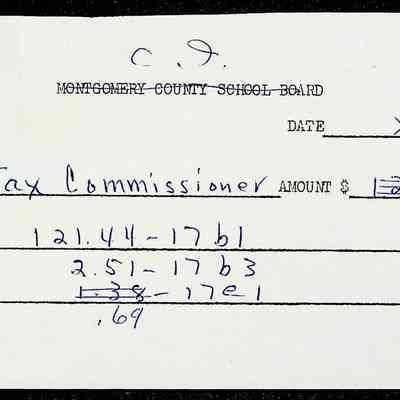 C. I.
MONTGOMERY COUNTY SCHOOL BOARD
DATE
Tax Commissioner AMOUNT $
121.44-17b1
2.51-17b3
1.38-17e1
.69